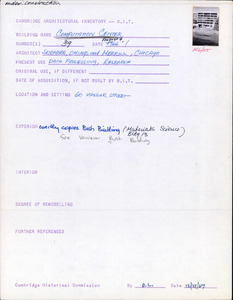 under construction
CAMBRIDGE ARCHITECTURAL INVENTORY -- M.I.T.
BUILDING NAME Computation Center
NUMBER(S) 39 DATE
ARCHITECT Skidmore, Owings, and Merrill, Chicago
PRESENT USE Data Processing, Research
ORIGINAL USE, IF DIFFERENT
DATE OF ACQUISITION, IF NOT BUILT BY M.I.T.
LOCATION AND SETTING 60 Vassar Street
EXTERIOR exactly copies Bush Building (Materials Science)
Bldg 13
See Vannevar Bush Building
INTERIOR
DEGREE OF REMODELLING
FURTHER REFERENCES
Cambridge Historical Commission By Date 12/12/67